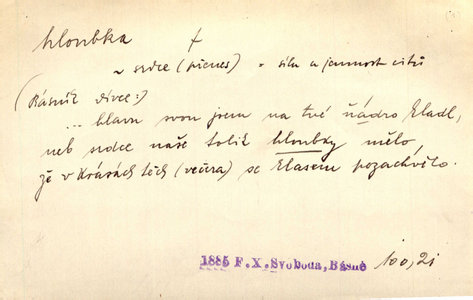 hloubka
~ srdce (přenes) = síla a jemnost citů
(Básník dívce:)
... hlavu svou jsem na tvé ňádro kladl,
neb srdce naše tolik hloubky mělo,
že v krásách těch (večera) se klasem pozachvělo.
1885 F.X.Svoboda, Básně 100,21